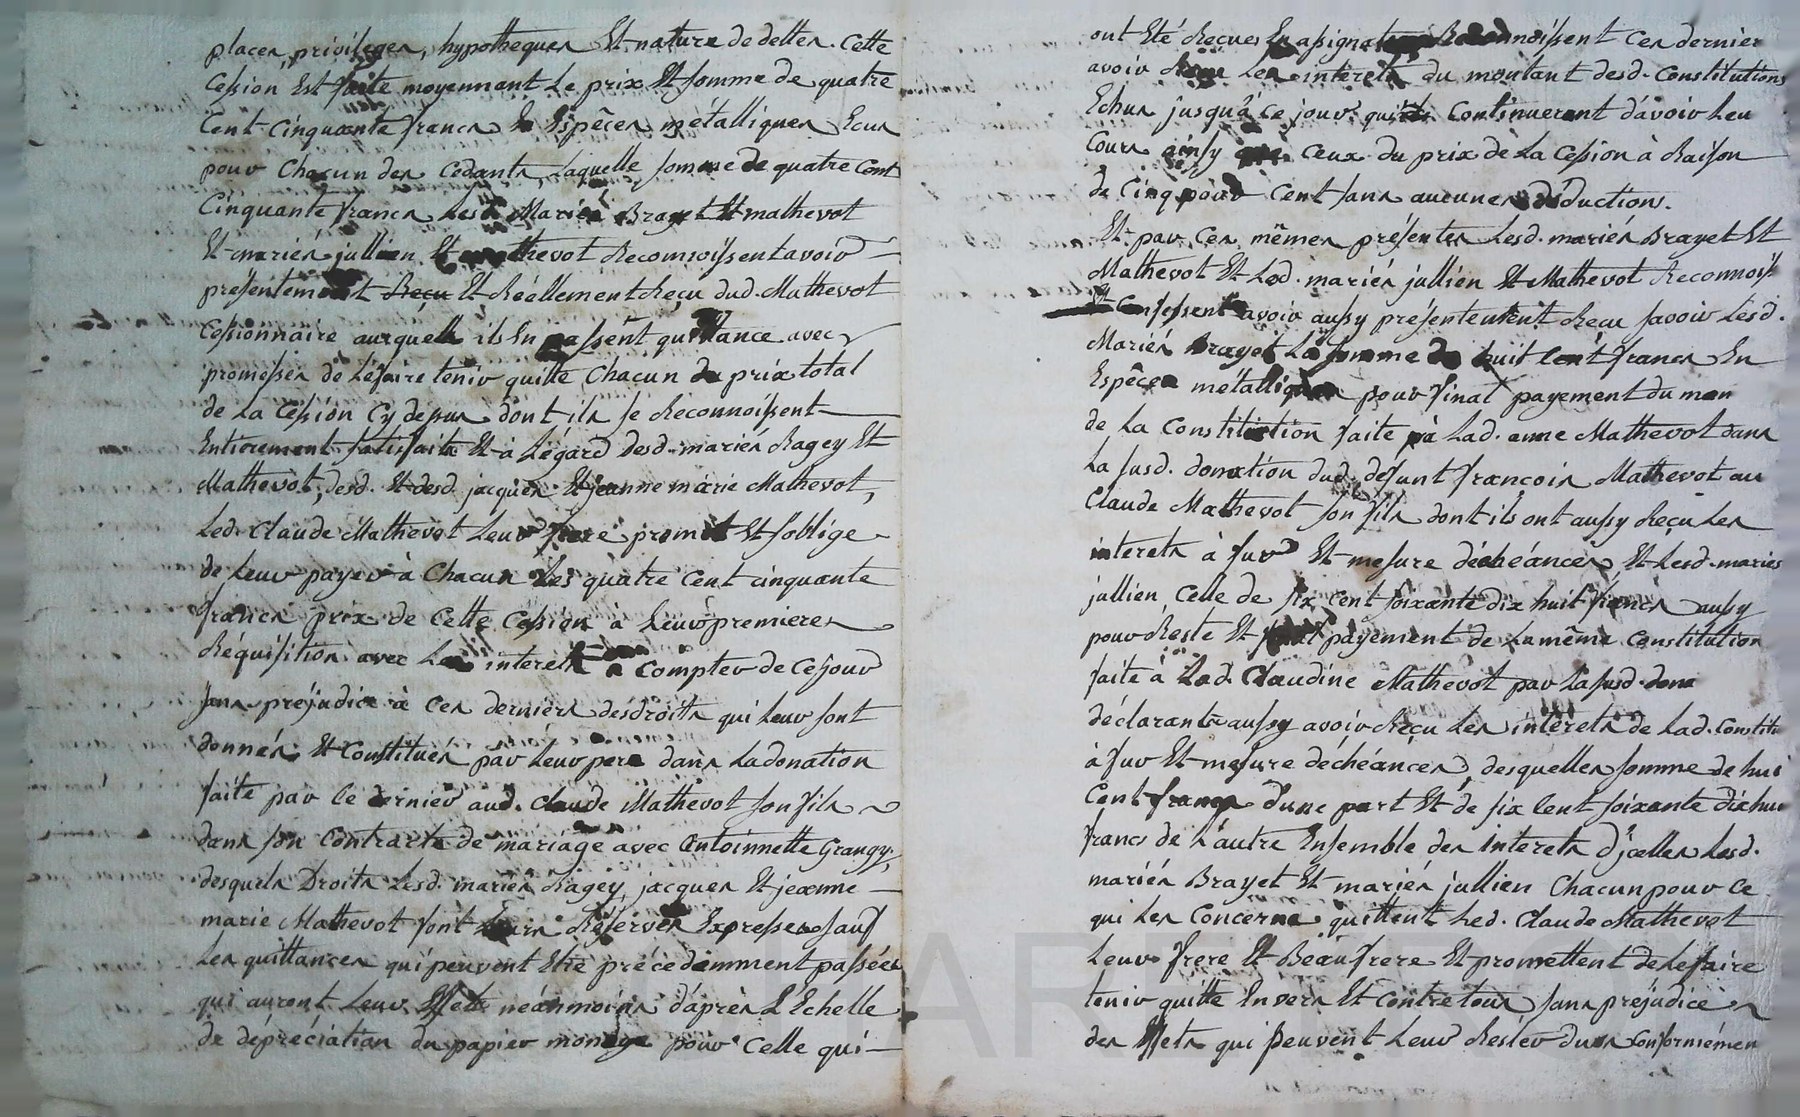 places, privileges, hypotheques Et nature de dettes. Cette
Cession Est faite moyennant Le prix Et somme de quatre
Cent Cinquante francs En Espêces métalliques Ecus
pour Chacun des Cédants, Laquelle somme de quatre Cent
Cinquante francs Lesd. Mariés Brayet Et mathevot
Et mariés jullien Et mathevot Reconnoissent avoir
présentement Reçu Et Réellement Reçu dud. Mathevot
Cessionnaire auquel ils En passent quittance avec
promesses de Le faire tenir quitte Chacun du prix total
de La Cession Cy dessus dont ils se Reconnoissent
Entierement satisfaits Et à L'égard desd. mariés Ragey Et
Mathevot, desd. Et desd. jacques Et jeanne marie Mathevot,
Led. Claude Mathevot Leur frere promet Et s'oblige
de Leur payer à Chacun Les quatre cent cinquante
francs prix de Cette Cession à Leurs premieres
Réquisition avec Les interets à Compter de Ce jour
sans préjudice à Ces derniers des droits qui Leur sont
donnés Et Constitués par Leur pere dans La donation
faite par ce dernier aud. Claude Mathevot son fils
dans son Contracte de mariage avec Antoinnette Grangy,
desquels Droits Lesd. mariés Ragey, jacques Et jeanne
marie Mathevot font Leurs Réserves Expresses sauf
Les quittances qui peuvent Etre précédamment passées
qui auront Leur Effets néanmoins d'après L'Echelle
de dépréciation du papier monoye pour Celle qui
ont Eté Reçues En assignats Reconnoissent Ces dernier
avoir Reçu Les interets du montant desd. Constitutions
Echus jusqu'à Ce jour qui Continueront d'avoir Leu
Cours ainsy que Ceux du prix de La Cession à Raison
de Cinq pour Cent sans aucunes déductions.
Et par Ces mêmes présentes Lesd. mariés Brayet Et
Mathevot Et Led. mariés jullien Et Mathevot Reconnoiss
Et Confessent avoir aussy présentement Recu savoir Lesd.
Mariés Brayet La somme de huit Cent francs En
Espêces métalliques pour final payement du mon
de La Constitution faite à Lad. anne Mathevot dans
La susd. donation dud. défunt francois Mathevot au
Claude Mathevot son fils dont ils ont aussy Reçu Les
interets à fur Et mesure d'échéances, Et Lesd. maries
jullien Celle de six cent soixante dix huit francs aussy
pour Reste Et final payement de La même Constitution
faite à Lad. Claudine Mathevot par La susd. dona
déclarants aussy avoir Reçu Les intérets de Lad. Constitu
à fur Et mesure déchéances, desquelles somme de hui
Cent francs d'une part Et de six Cent soixante dix hui
francs de L'autre Ensemble des interets d'jcelles Lesd.
mariés Brayet Et mariés jullien Chacun pour Ce
qui Les Concerne quittent Led. Claude Mathevot
Leur frere Et Béaufrere Et promettent de Le faire
tenir quitte Envers Et Contre tous sans préjudice
des Effets qui peuvent Leur Rester dues Conformémen